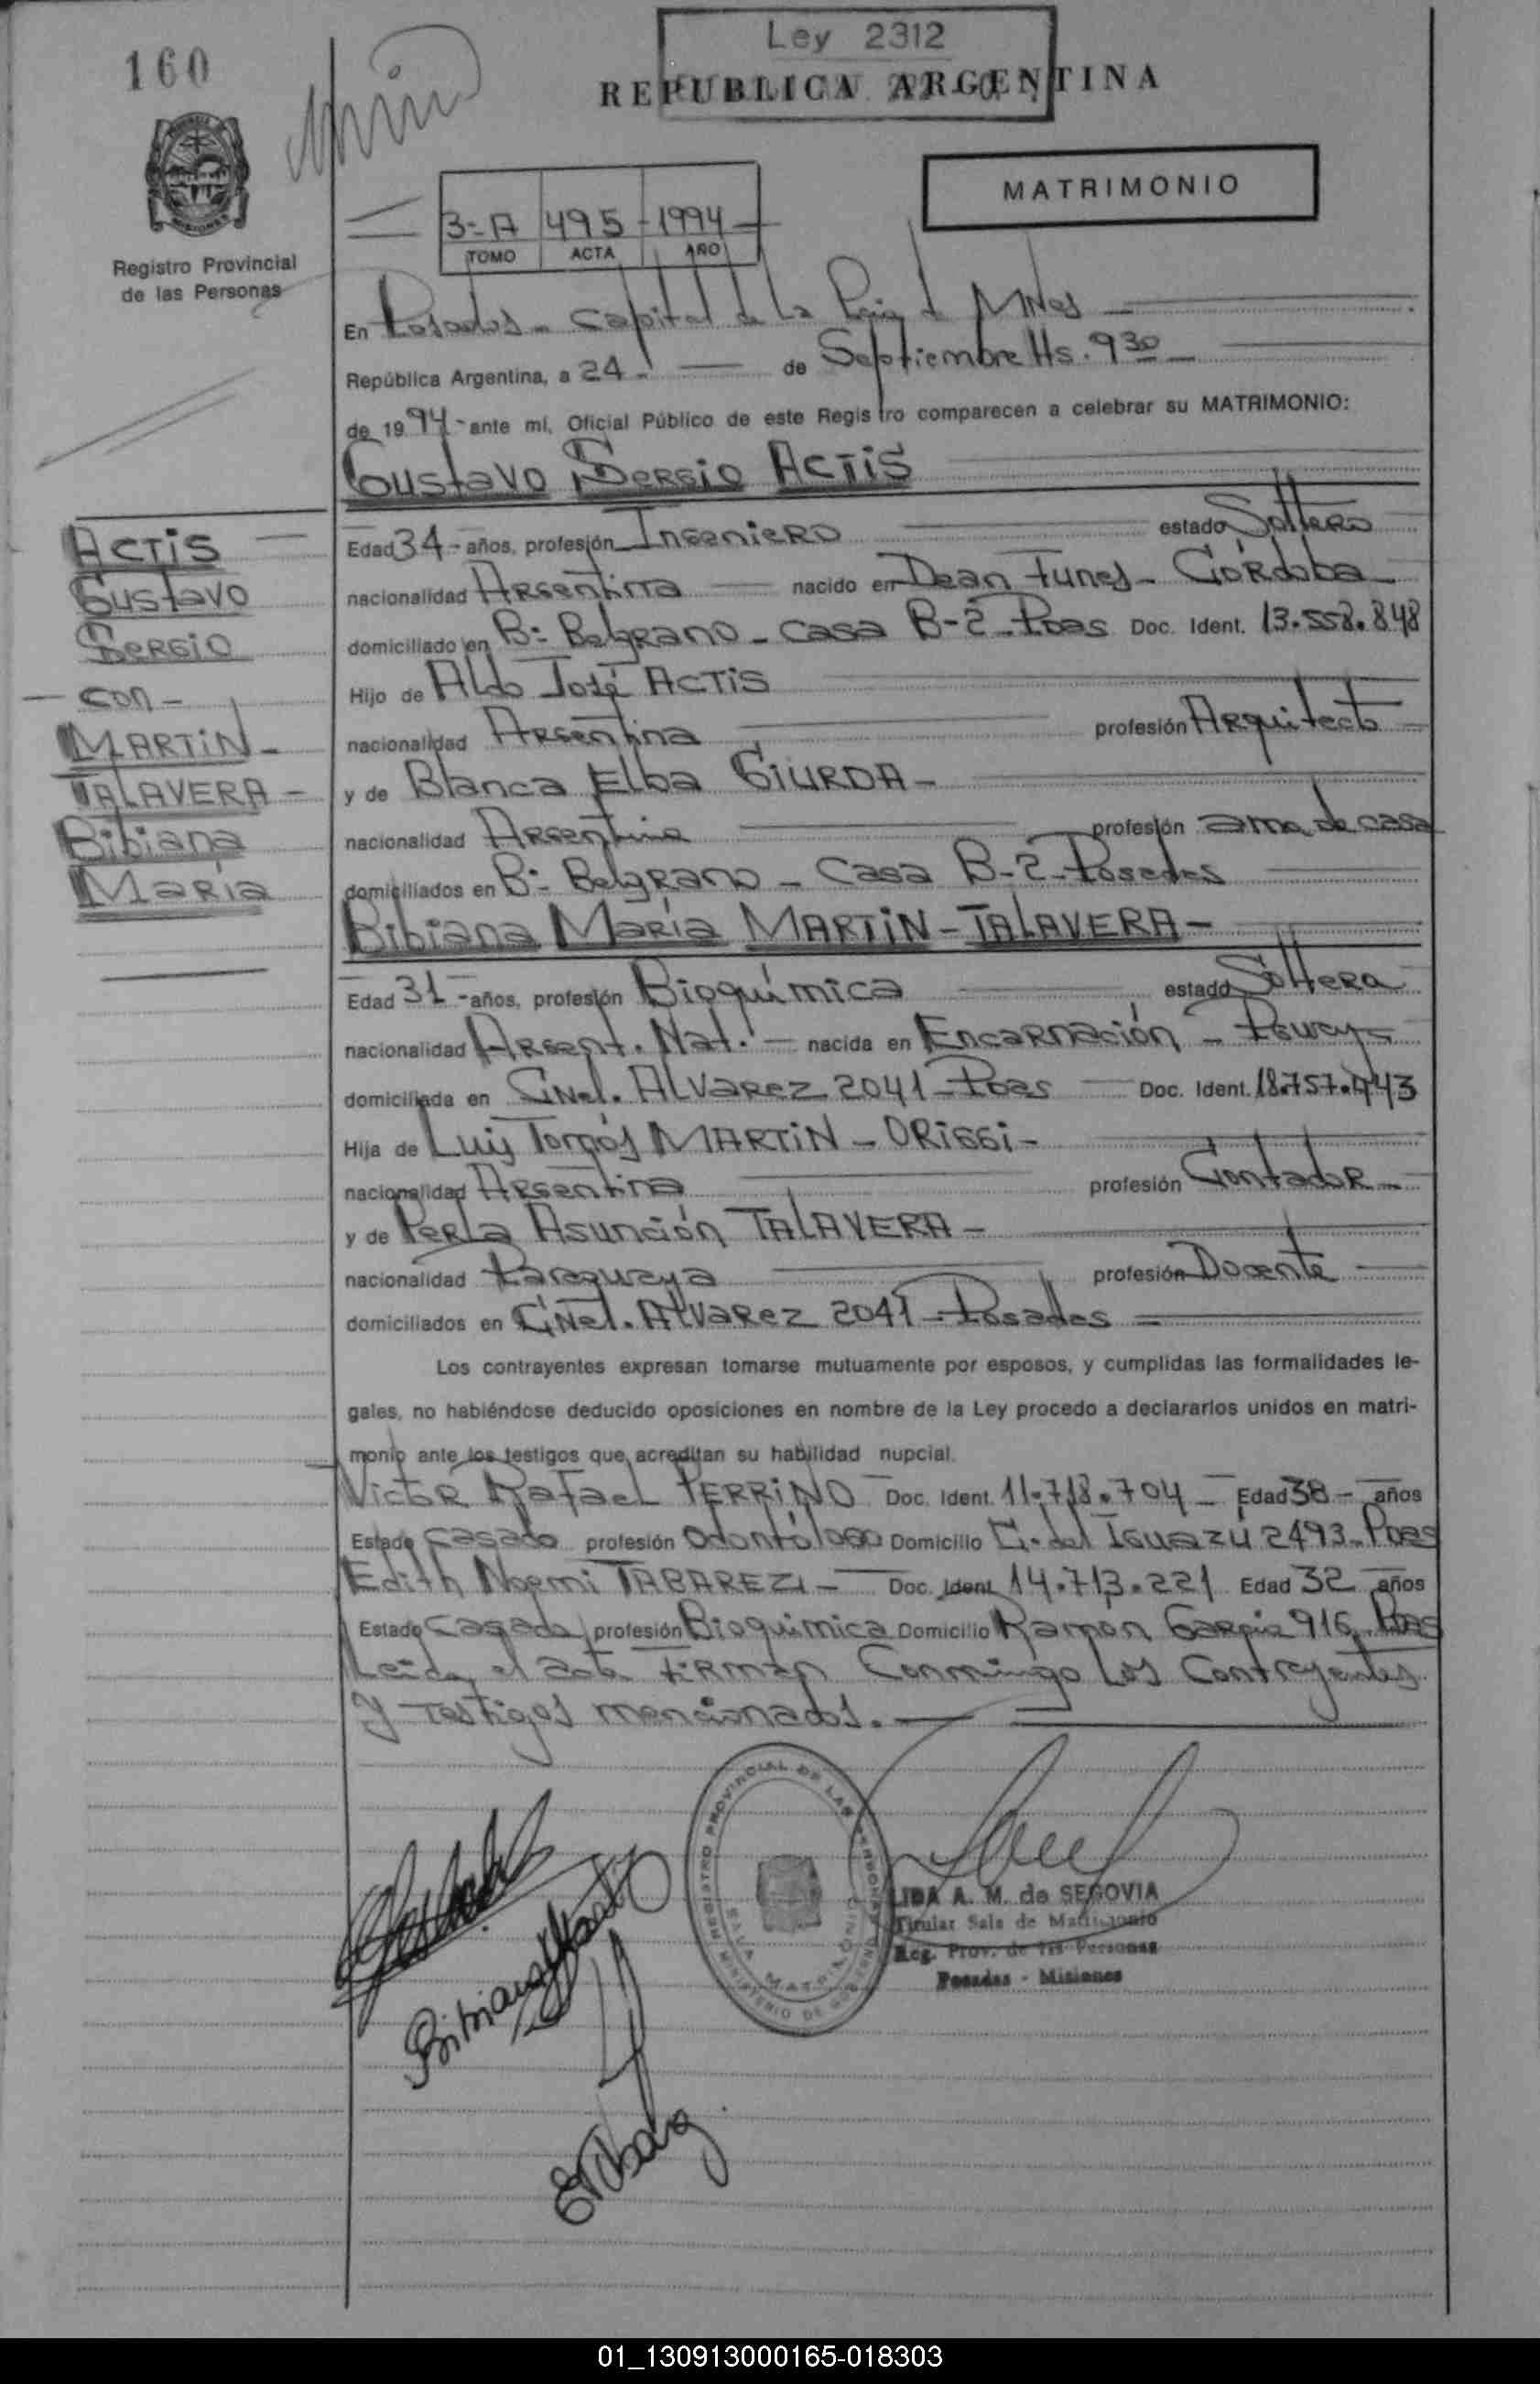 160
Ley 2312
REPUBLICA ARGENTINA
MATRIMONIO
3-A 495 1994
TOMO ACTA AÑO
Registro Provincial
de las Personas
En Posadas - Capital de la Pcia d Mnes
República Argentina, a 24 - de Septiembre Hs. 9 30
de 1994 - ante mí, Oficial Público de este Registro comparecen a celebrar su MATRIMONIO:
Gustavo Sergio ACTiS
ACTiS
Gustavo
Sergio
- con -
MARTiN -
TALAVERA -
Bibiana
María
Edad 34 - años, profesión Ingeniero estado Soltero
nacionalidad Argentina nacido en Dean Funes - Córdoba
domiciliado en B= Belgrano - casa B-2 - Pdas Doc. Ident. 13.558.848
Hijo de Aldo José ACTiS
nacionalidad Argentina profesión Arquitecto
y de Blanca Elba GIURDA -
nacionalidad Argentina profesión ama de casa
domiciliados en B= Belgrano - Casa B-2 - Posadas
Bibiana María MARTiN - TALAVERA -
Edad 31 - años, profesión Bioquímica estado Soltera
nacionalidad Argent. Nat. - nacida en Encarnación - Pguay
domiciliada en Cnel. Alvarez 2041 - Pdas Doc. Ident. 18.757.443
Hija de Luis Tomás MARTiN - ORiGGi -
nacionalidad Argentina profesión Contador
y de Perla Asunción TALAVERA -
nacionalidad Paraguaya profesión Docente
domiciliados en Cnel. Alvarez 2041 - Posadas
Los contrayentes expresan tomarse mutuamente por esposos, y cumplidas las formalidades le-
gales, no habiéndose deducido oposiciones en nombre de la Ley procedo a declararlos unidos en matri-
monio ante los testigos que acreditan su habilidad nupcial.
Victor Rafael PERRiNO Doc. Ident. 11.718.704 - Edad 38 - años
Estado Casado profesión Odontólogo Domicilio C. del Iguazú 2493 - Pdas
Edith Noemi TABAREZ - Doc. Ident. 14.713.221 Edad 32 años
Estado Casada profesión Bioquímica Domicilio Ramon Garcia 916 Pdas
Leida el acta firman Conmingo los Contrayentes
y testigos mencionados. -
REGISTRO PROVINCIAL DE LAS PERSONAS
SALA MATRIMONIO
MINISTERIO DE GOBIERNO
LIDA A. M. de SEGOVIA
Titular Sala de Matrimonio
Reg. Prov. de las Personas
Posadas - Misiones
01_130913000165-018303